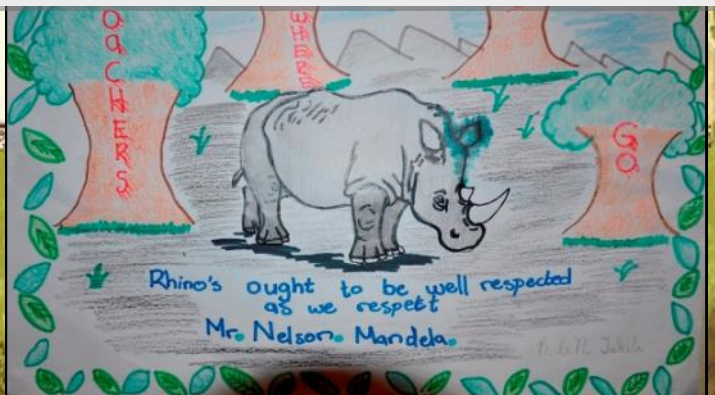 POACHERS
WHERE
GO
Rhino's ought to be well respected
as we respect
Mr. Nelson. Mandela.